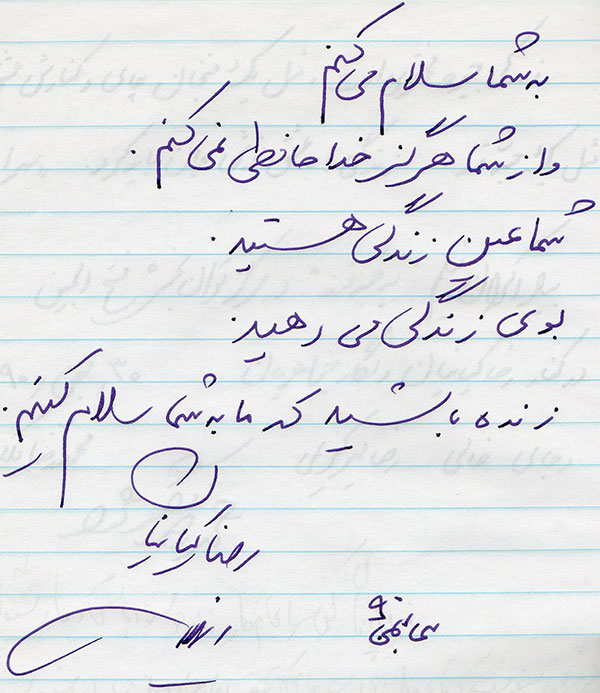 به شما سلام می کنم
و از شما هرگز خداحافظی نمی کنم.
شما عین زندگی هستید.
بوی زندگی می دهید.
زنده باشید که ما به شما سلام کنیم.
رضا کیانیان